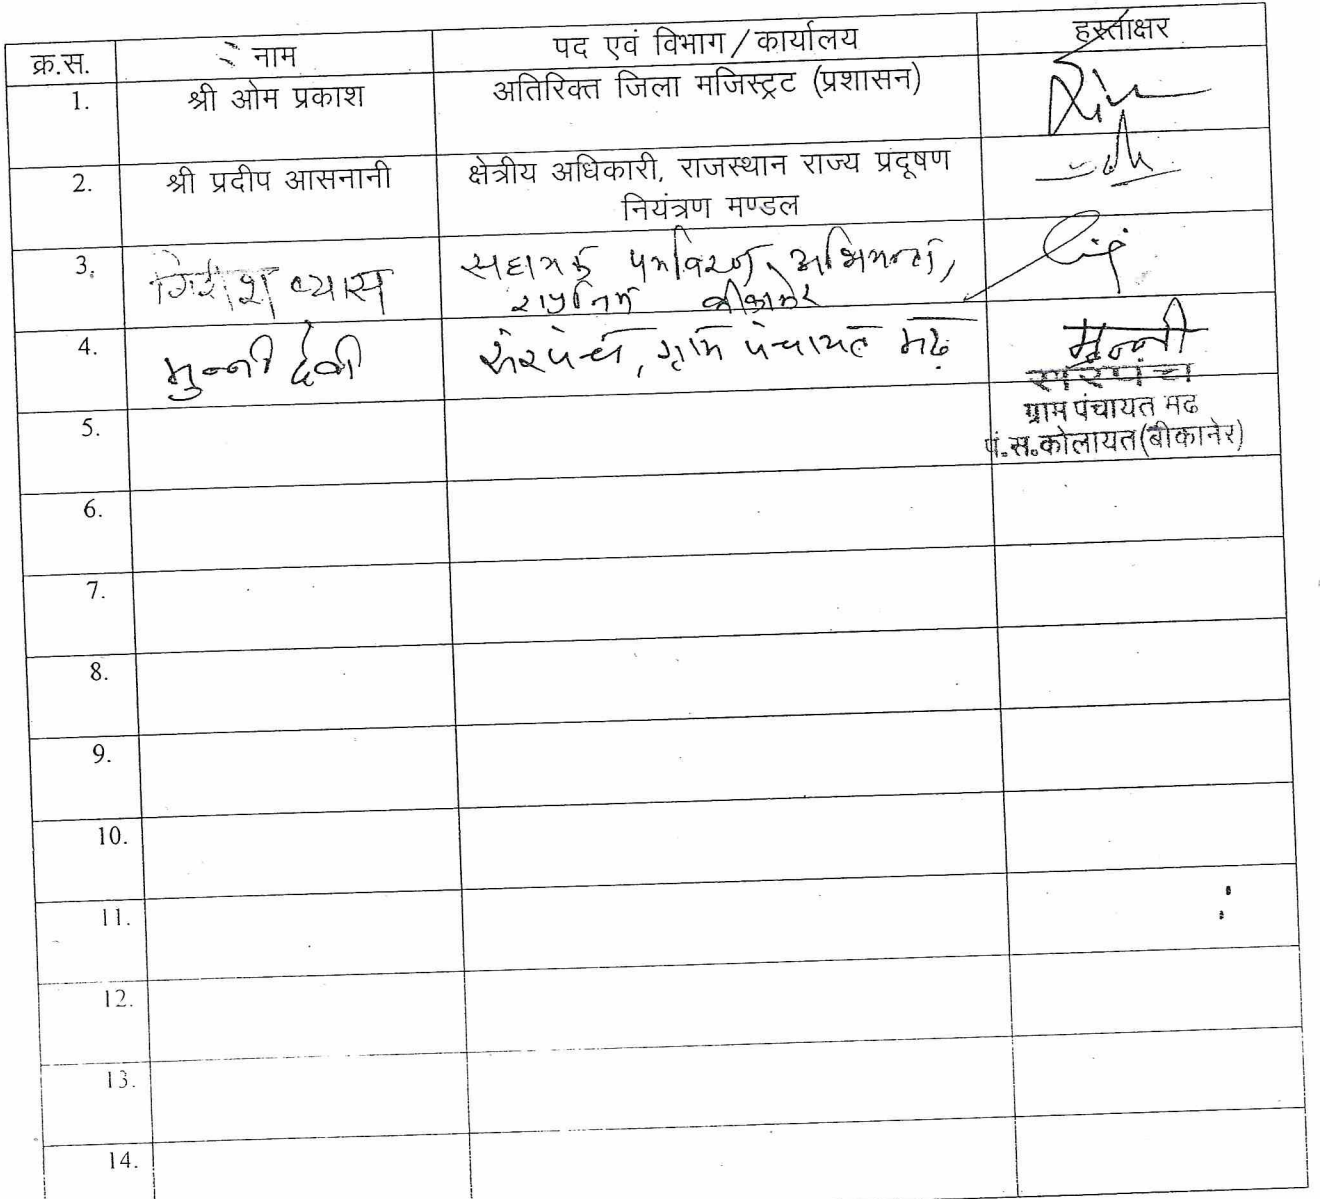 क्र.स. नाम पद एवं विभाग / कार्यालय हस्ताक्षर
1. श्री ओम प्रकाश अतिरिक्त जिला मजिस्ट्रट (प्रशासन)
2. श्री प्रदीप आसनानी क्षेत्रीय अधिकारी, राजस्थान राज्य प्रदूषण
नियंत्रण मण्डल
3. गिरीश व्यास सहायक पर्यावरण अभियन्ता,
राप्रनिम बीकानेर
4. मुन्नी देवी सरपंच, ग्राम पंचायत मढ मुन्नी
सरपंच
ग्राम पंचायत मढ
5.
पं.स.कोलायत(बीकानेर)
6.
7.
8.
9.
10.
11.
12.
13.
14.